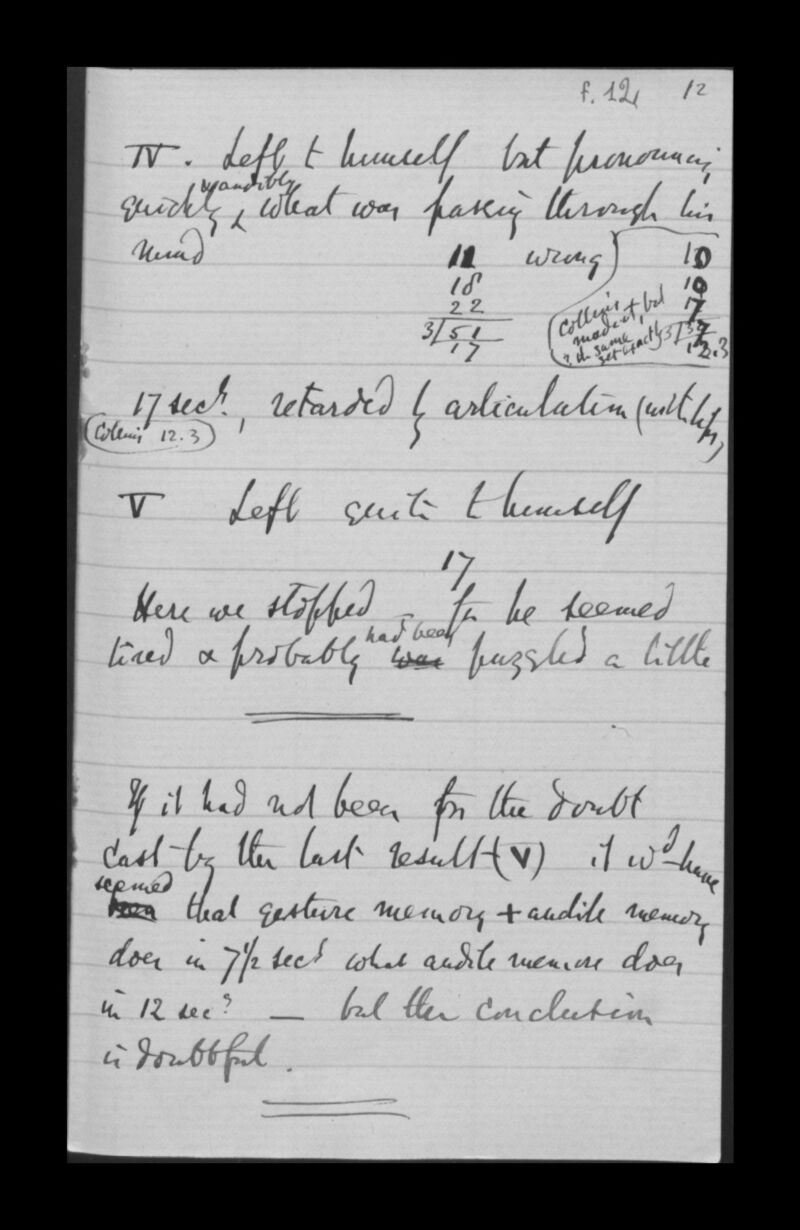 f. 12 12
IV. Left to himself but pronouncing
inaudibly
quickly ^ what was passing through his
mind
11 wrong 10
18 10
22 17
3/51 3/37
17 12.3
Collins
made it, but
the same
exactly
17 secs, retarded by articulation (with lips)
(Collins 12.3)
V Left quite to himself
17
Here we stopped – for he seemed
had been
tired & probably was puzzled a little
If it had not been for the doubt
cast by the last result (V) it wd have
seemed
been that gesture memory + audile memory
does in 7 1/2 secs what audile memory does
in 12 secs — but the conclusion
is doubtful.